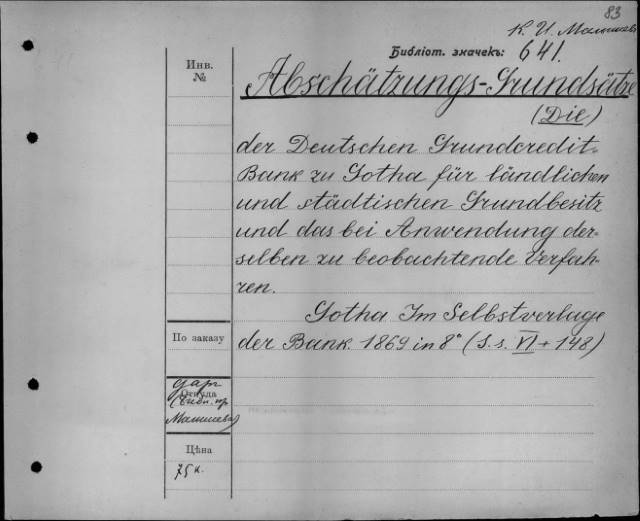 83
К. И. Малышева
Библіот. значекъ: 641.
Инв.
№
Abschätzungs-Grundsätze
(Die)
der Deutschen Grundcredit-
Bank zu Gotha für ländlichen
und städtischen Grundbesitz
und das bei Anwendung der-
selben zu beobachtende Verfah-
ren.
Gotha Im Selbstverlage
der Bank. 1869 in 8° (S.s. VI + 148)
По заказу
Откуда
дар
Малышева)
Цѣна
75 к.